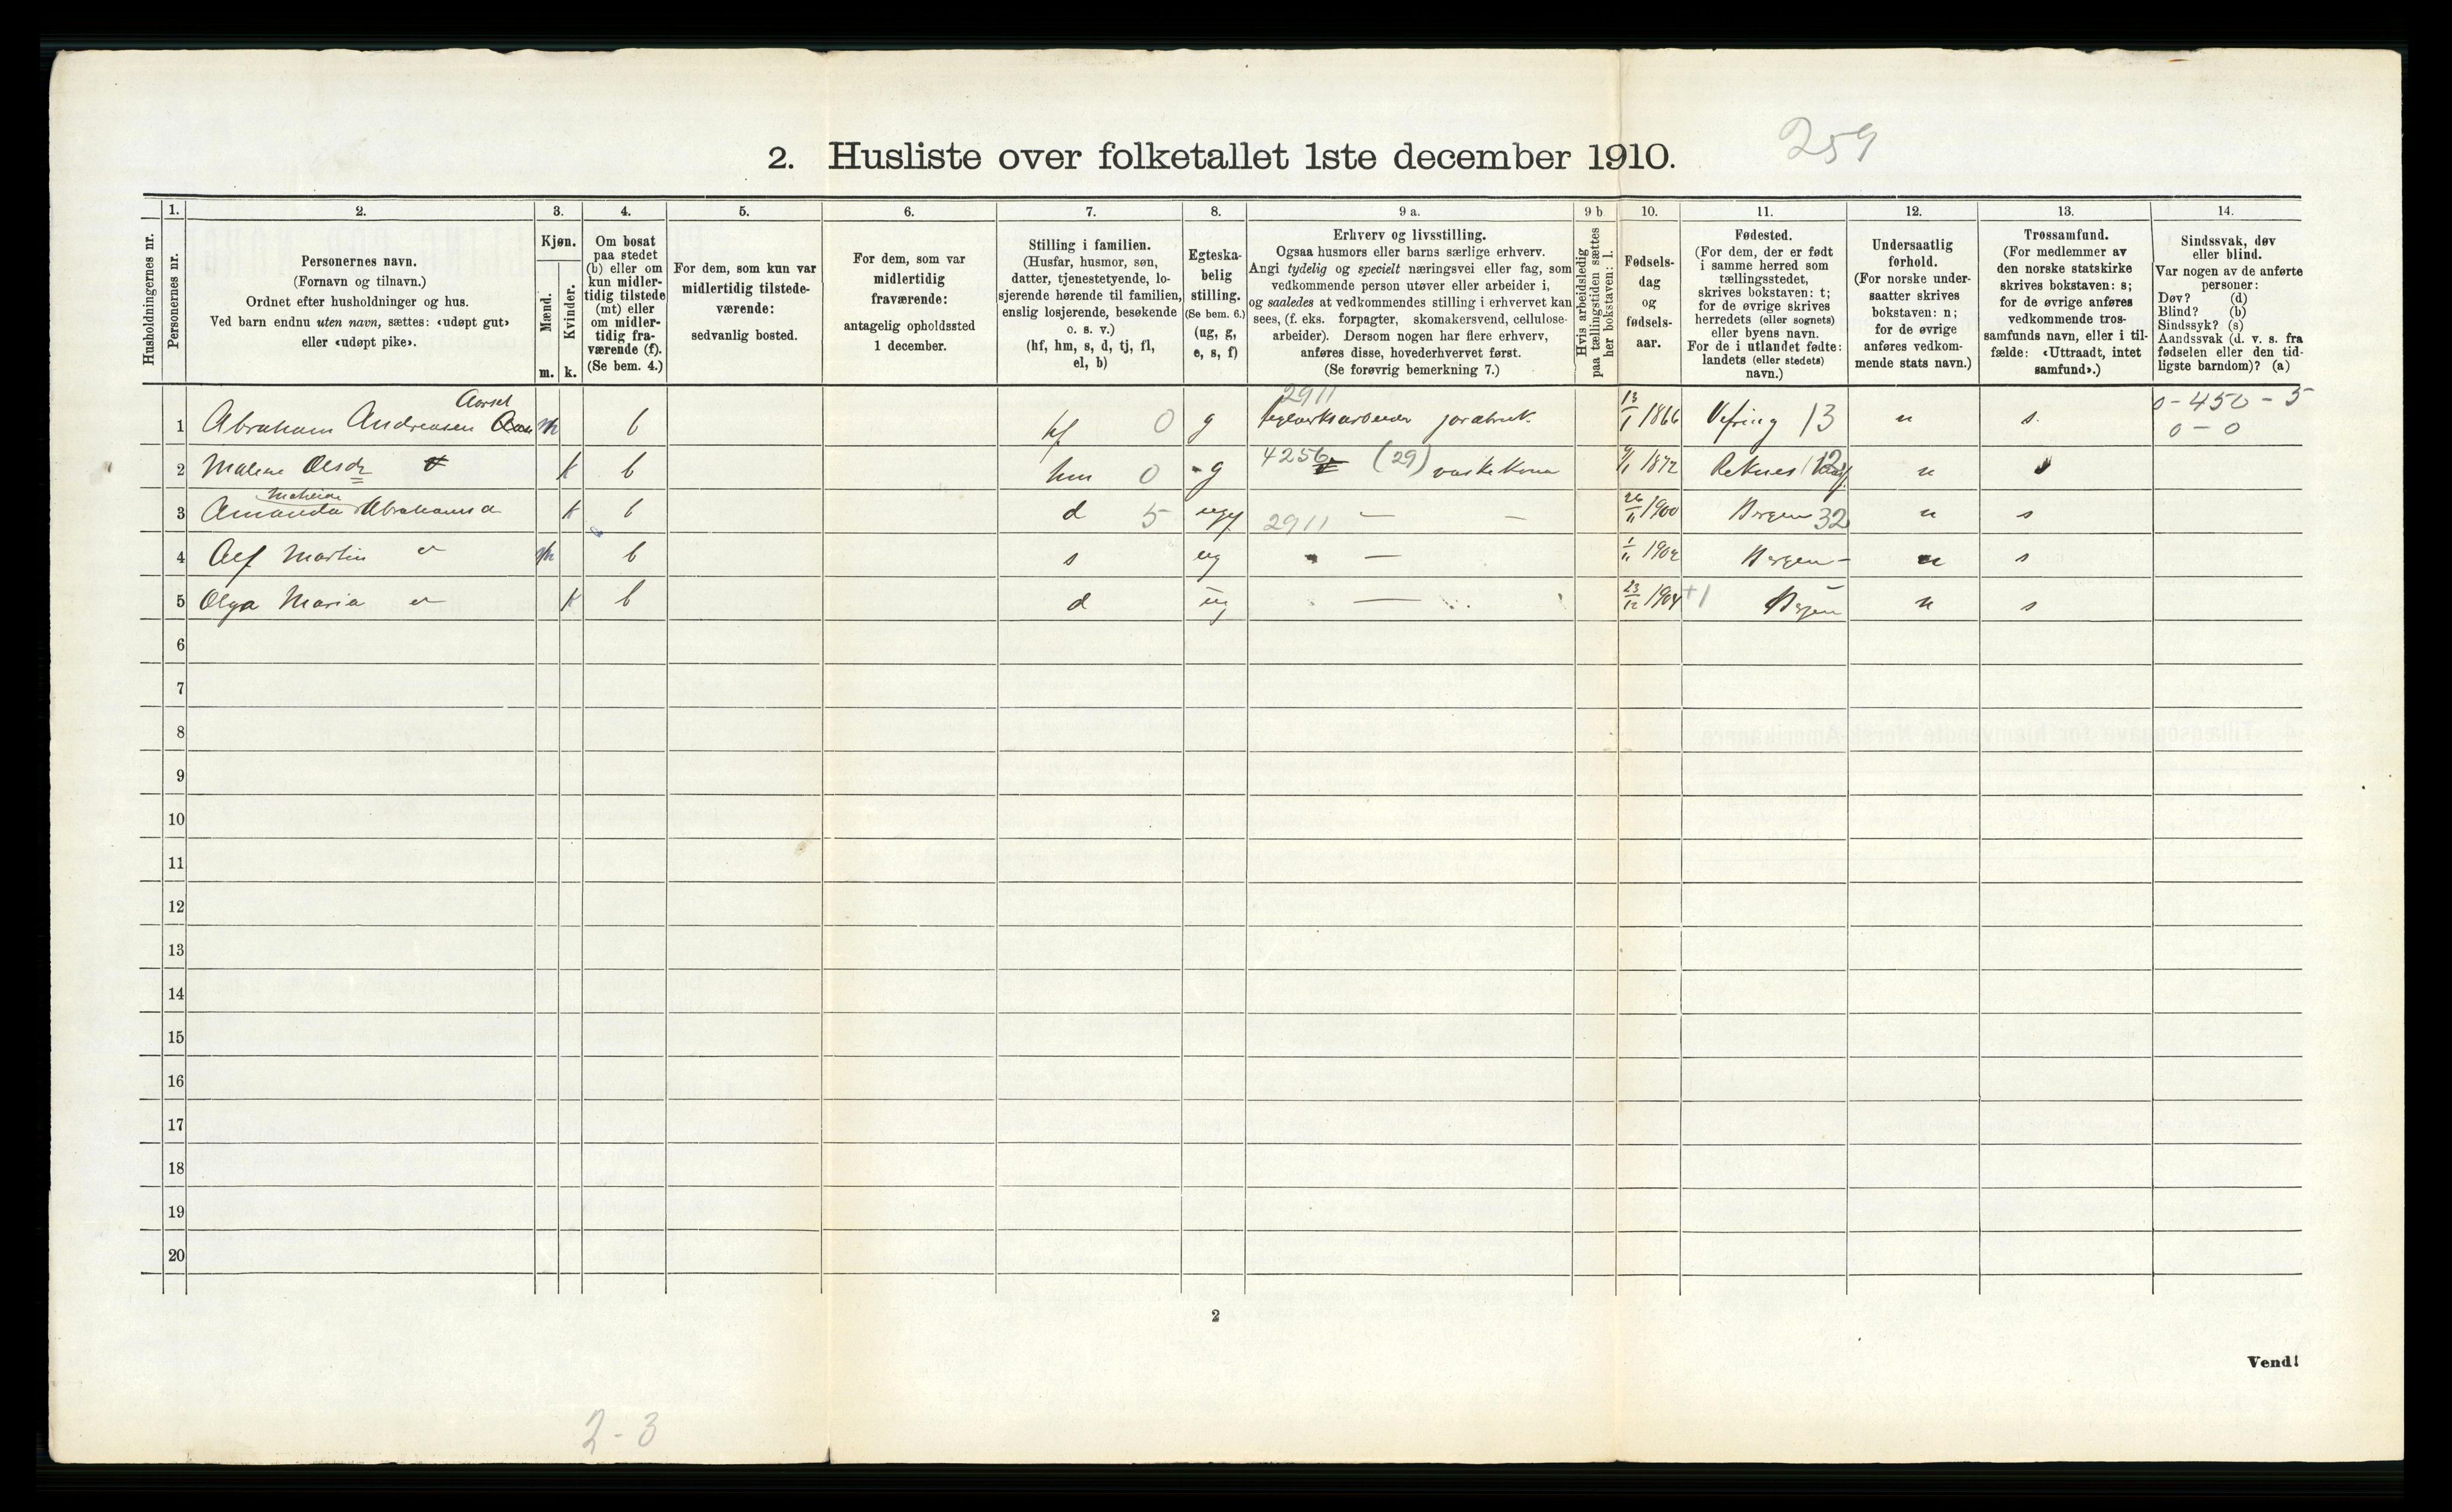 259
2. Husliste over folketallet 1ste december 1910.
Husholdningernes nr.
1.
Personernes nr.
2.
Personernes navn.
(Fornavn og tilnavn.)
Ordnet efter husholdninger og hus.
Ved barn endnu uten navn, sættes: «udøpt gut»
eller «udøpt pike».
3.
Kjøn.
Mænd.
Kvinder.
m. k.
4.
Om bosat
paa stedet
(b) eller om
kun midler-
tidig tilstede
(mt) eller
om midler-
tidig fra-
værende (f).
(Se bem. 4.)
5.
For dem, som kun var
midlertidig tilstede-
værende:
sedvanlig bosted.
6.
For dem, som var
midlertidig
fraværende:
antagelig opholdssted
1 december.
7.
Stilling i familien.
(Husfar, husmor, søn,
datter, tjenestetyende, lo-
sjerende hørende til familien,
enslig losjerende, besøkende
o. s. v.)
(hf, hm, s, d, tj, fl,
el, b)
8.
Egteska-
belig
stilling.
(Se bem. 6.)
(ug, g,
e, s, f)
9 a.
Erhverv og livsstilling.
Ogsaa husmors eller barns særlige erhverv.
Angi tydelig og specielt næringsvei eller fag, som
vedkommende person utøver eller arbeider i,
og saaledes at vedkommendes stilling i erhvervet kan
sees, (f. eks. forpagter, skomakersvend, cellulose-
arbeider). Dersom nogen har flere erhverv,
anføres disse, hovederhvervet først.
(Se forøvrig bemerkning 7.)
9 b
Hvis arbeidsledig
paa tællingstiden sættes
her bokstaven: l.
10.
Fødsels-
dag
og
fødsels-
aar.
11.
Fødested.
(For dem, der er født
i samme herred som
tællingsstedet,
skrives bokstaven: t;
for de øvrige skrives
herredets (eller sognets)
eller byens navn.
For de i utlandet fødte:
landets (eller stedets)
navn.)
12.
Undersaatlig
forhold.
(For norske under-
saatter skrives
bokstaven: n;
for de øvrige
anføres vedkom-
mende stats navn.)
13.
Trossamfund.
(For medlemmer av
den norske statskirke
skrives bokstaven: s;
for de øvrige anføres
vedkommende tros-
samfunds navn, eller i til-
fælde: «Uttraadt, intet
samfund».)
14.
Sindssvak, døv
eller blind.
Var nogen av de anførte
personer:
Døv? (d)
Blind? (b)
Sindssyk? (s)
Aandssvak (d. v. s. fra
fødselen eller den tid-
ligste barndom)? (a)
2911 0-450-5
1 Abraham Andreasen m b hf 0 g 13/1 1866 Vefring 13 n s. 0-0
2 Malene Olsdr k b hm 0 g 4256 (29) vaskekone 1872 n s
3 Amanda Abrahamsd k b d 5 ug 2911 — 26/11 1900 Bergen 32 n s
4 Alf Martin m b s ug — 1902 Bergen n s
5 Olga Maria k b d ug — 23/12 1904 +1 Bergen n s
6
7
8
9
10
11
12
13
14
15
16
17
18
19
20
2
Vend!
2-3